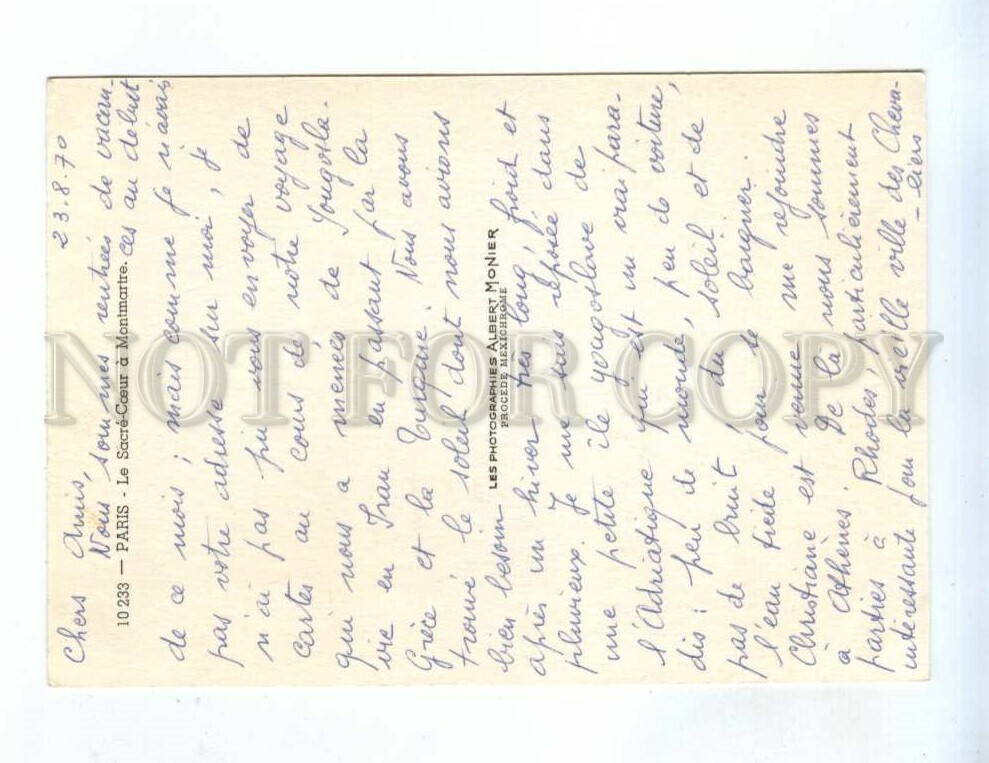 23.8.70
Chers Amis,
Nous sommes rentrées de vacan-
10 233 — PARIS - Le Sacré-Cœur à Montmartre.
ces au début
de ce mois ; mais comme je n'avais
pas votre adresse sur moi, je
n'ai pas pu vous envoyer de
cartes au cours de notre voyage
qui nous a menées de Yougosla-
vie en Iran en passant par la
Grèce et la Turquie. Nous avons
trouvé le soleil dont nous avions
bien besoin
LES PHOTOGRAPHIES ALBERT MONIER
PROCÉDÉ MEXICHROME
après un hiver très long, froid et
pluvieux. Je me suis reposée dans
une petite île yougoslave de
l'Adriatique qui est un vrai para-
dis : peu de monde, peu de voiture,
pas de bruit, du soleil et de
l'eau tiède pour se baigner.
Christiane est venue me rejoindre
à Athènes. De là nous sommes
parties à Rhodes, particulièrement
intéressante pour la vieille ville des Cheva-
-liers
NOT FOR COPY